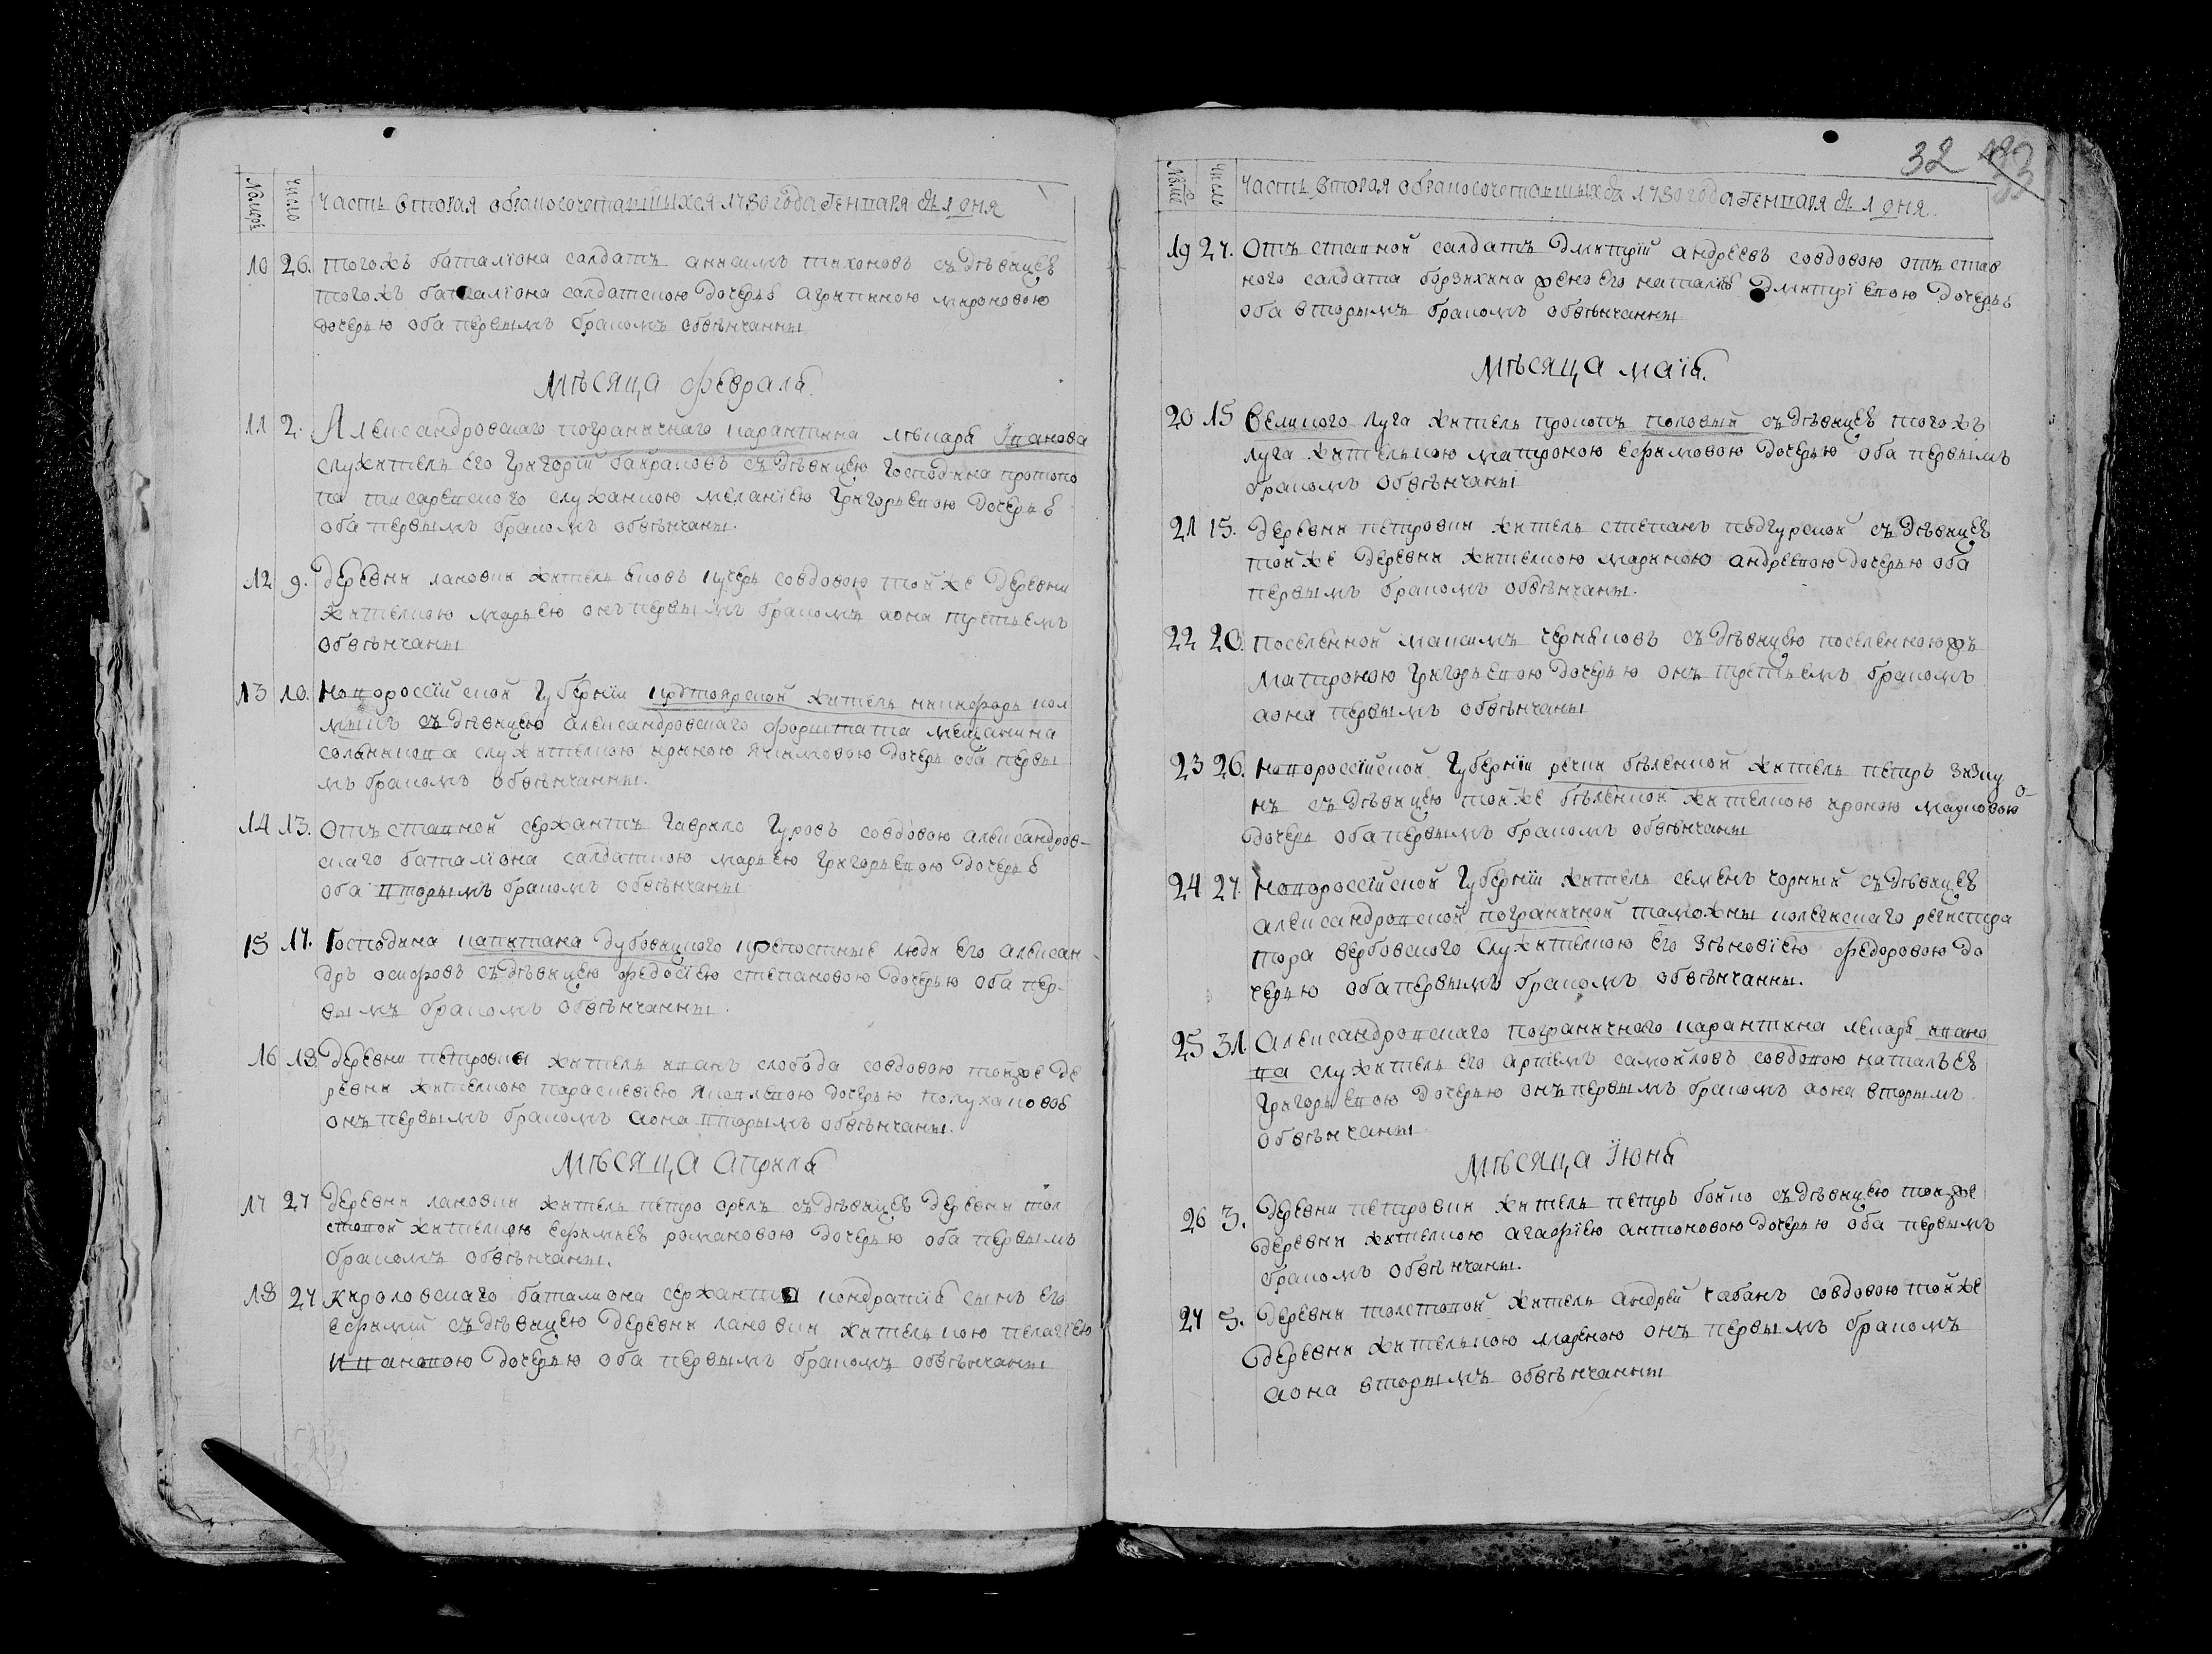 Номеръ
число
часть вторая обракосочетавшыхся 1780 года генваря съ 1 дня
10 26. тогожъ баталіона салдатъ анисимъ тихоновъ съ дѣвицею
тогожъ баталіона салдатскою дочерью агрипиною мироновою
дочерью оба первымъ бракомъ обвѣнчанны
Мѣсяца февраля
11 2. Александровскаго пограничнаго карантина лѣкаря Іванова
служитель его григорій баираковъ съ дѣвицею господина протопо
па писаревского служанкою меланіею григорьевою дочерью
оба первымъ бракомъ обвѣнчаны.
12 9. деревни лановки житель яковъ кучеръ совдовою тойже деревни
жителкою марьею онъ первымъ бракомъ аона третьемъ
обвѣнчаны
13 10. Новороссійской губерніи житель никифоръ кол
съ дѣвицею александровскаго форштата мещанина
служителкою ириною якимовою дочерь оба первы
мъ бракомъ обвѣнчанны.
14 13. Отъ ставной сержантъ гаврило гуровъ совдовою александров-
скаго баталіона салдаткою марьею григорьевою дочерью
оба вторымъ бракомъ обвѣнчаны
15 17. Господина капитана дубовицкого крепостные люди его алексан
дръ осиповъ съ дѣвицею федосіею степановою дочерью оба пер-
вымъ бракомъ обвѣнчанны.
16 18. деревни петровки житель иванъ слобода совдовою тойже де
ревни жителкою парасковіею яковлевою дочерью
онъ первымъ бракомъ аона вторымъ обвѣнчаны.
Мѣсяца Априля
17 27 деревни лановки житель петро орелъ съ дѣвицею деревни тол
стовой жителкою ефимиею романовою дочерью оба первымъ
бракомъ обвѣнчаны.
18 27 кироловскаго баталиона сержанта кондратія сынъ его
ефимій съ дѣвицею деревни лановки жителькою пелагіею
ивановою дочерью оба первымъ бракомъ обвѣнчаны
32
число
часть вторая обракосочетавшыхся 1780 года генваря съ 1 дня
19 27. Отъ ставной салдатъ дмитрій андреевъ совдовою отъ став
ного салдата борзихина женою его наталіею дмитріевою дочерью
оба вторымъ бракомъ обвѣнчанны
Мѣсяца маія.
20 15 великого луга житель прокопъ половый съ дѣвицею тогожъ
луга жителькою матроною ефимовою дочерью оба первымъ
бракомъ обвѣнчаны
21 15. деревни петровки житель степанъ подгурской съ дѣвицею
тойже деревни жителкою мариною андревою дочерью оба
первымъ бракомъ обвѣнчаны.
22 20. поселенной максимъ черняковъ съ дѣвицею поселенною жъ
матроною григорьевою дочерью онъ третьемъ бракомъ
аона первымъ обвѣнчаны
23 26. Новороссійской губерніи речки бѣленкой житель петръ
съ дѣвицею тойже бѣленкой жителкою ироною марковою
дочерь оба первымъ бракомъ обвѣнчаны
24 27. Новороссійской губерніи житель семенъ чорный съ дѣвицею
александровской пограничной таможны колегискаго регистра
тора вербовского служителкою его зѣновіею федоровою до
черью оба первымъ бракомъ обвѣнчанны.
25 31 Александровскаго пограничного карантина лекаря ивано
ва служитель его артіемъ самойловъ совдовою натальею
григорьевою дочерью онъ первымъ бракомъ аона вторымъ
обвѣнчаны
Мѣсяца Іюня
26 3. деревни петровки житель петръ бойко съ дѣвицею тойже
деревни жителкою агафіею антоновою дочерью оба первымъ
бракомъ обвѣнчаны.
27 5. деревни толстовой житель андрей чабанъ совдовою тойже
деревни жителькою мареною онъ первымъ бракомъ
аона вторымъ обвѣнчанны